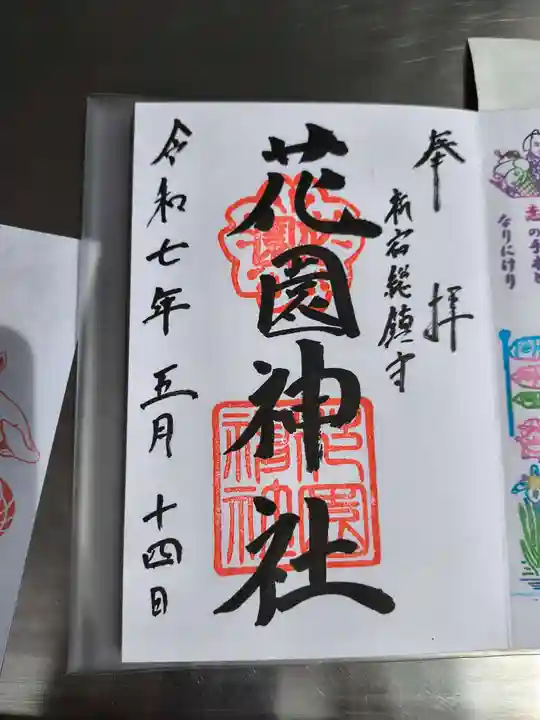 奉拝
新宿総鎮守
花園神社
花園神社
令和七年五月十四日
の手本と
なりにけり